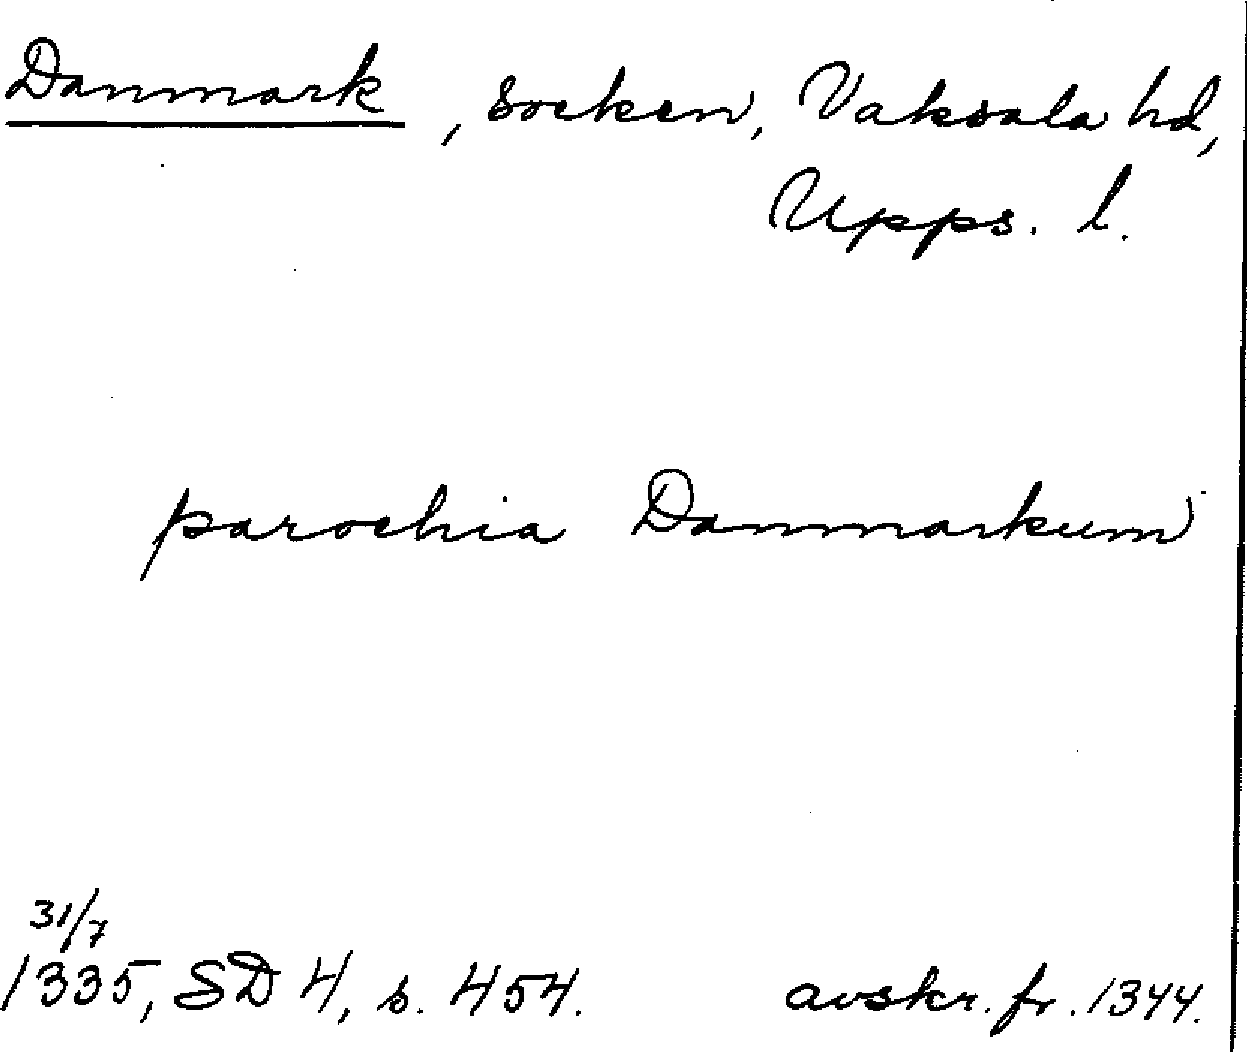 Danmark, socken, Vaksala hd,
Upps. l.
parochia Danmarkum
31/7
1335, SD 4, s. 454. avskr. fr. 1344.